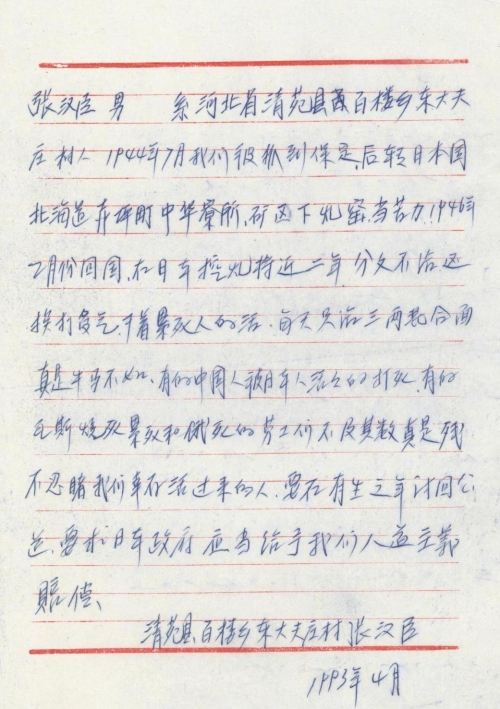 张汉臣 男 系河北省清苑县百楼乡东大夫
庄村人 1944年7月我们被抓到保定,后转日本国
北海道赤坪町中华寮所,矿区下煤窑,当苦力,1946年
2月份回国,在日本挖煤将近二年,分文不给还
挨打受气,干着累死人的活,每天只给三两混合面
真是牛马不如,有的中国人被日本人活活的打死,有的
瓦斯烧死累死和饿死的劳工们不及其数真是残
不忍睹我们幸存活过来的人,要在有生之年讨回公
道,要求日本政府应当给予我们人道主义
赔偿、
清苑县百楼乡东大夫庄村张汉臣
1993年4月